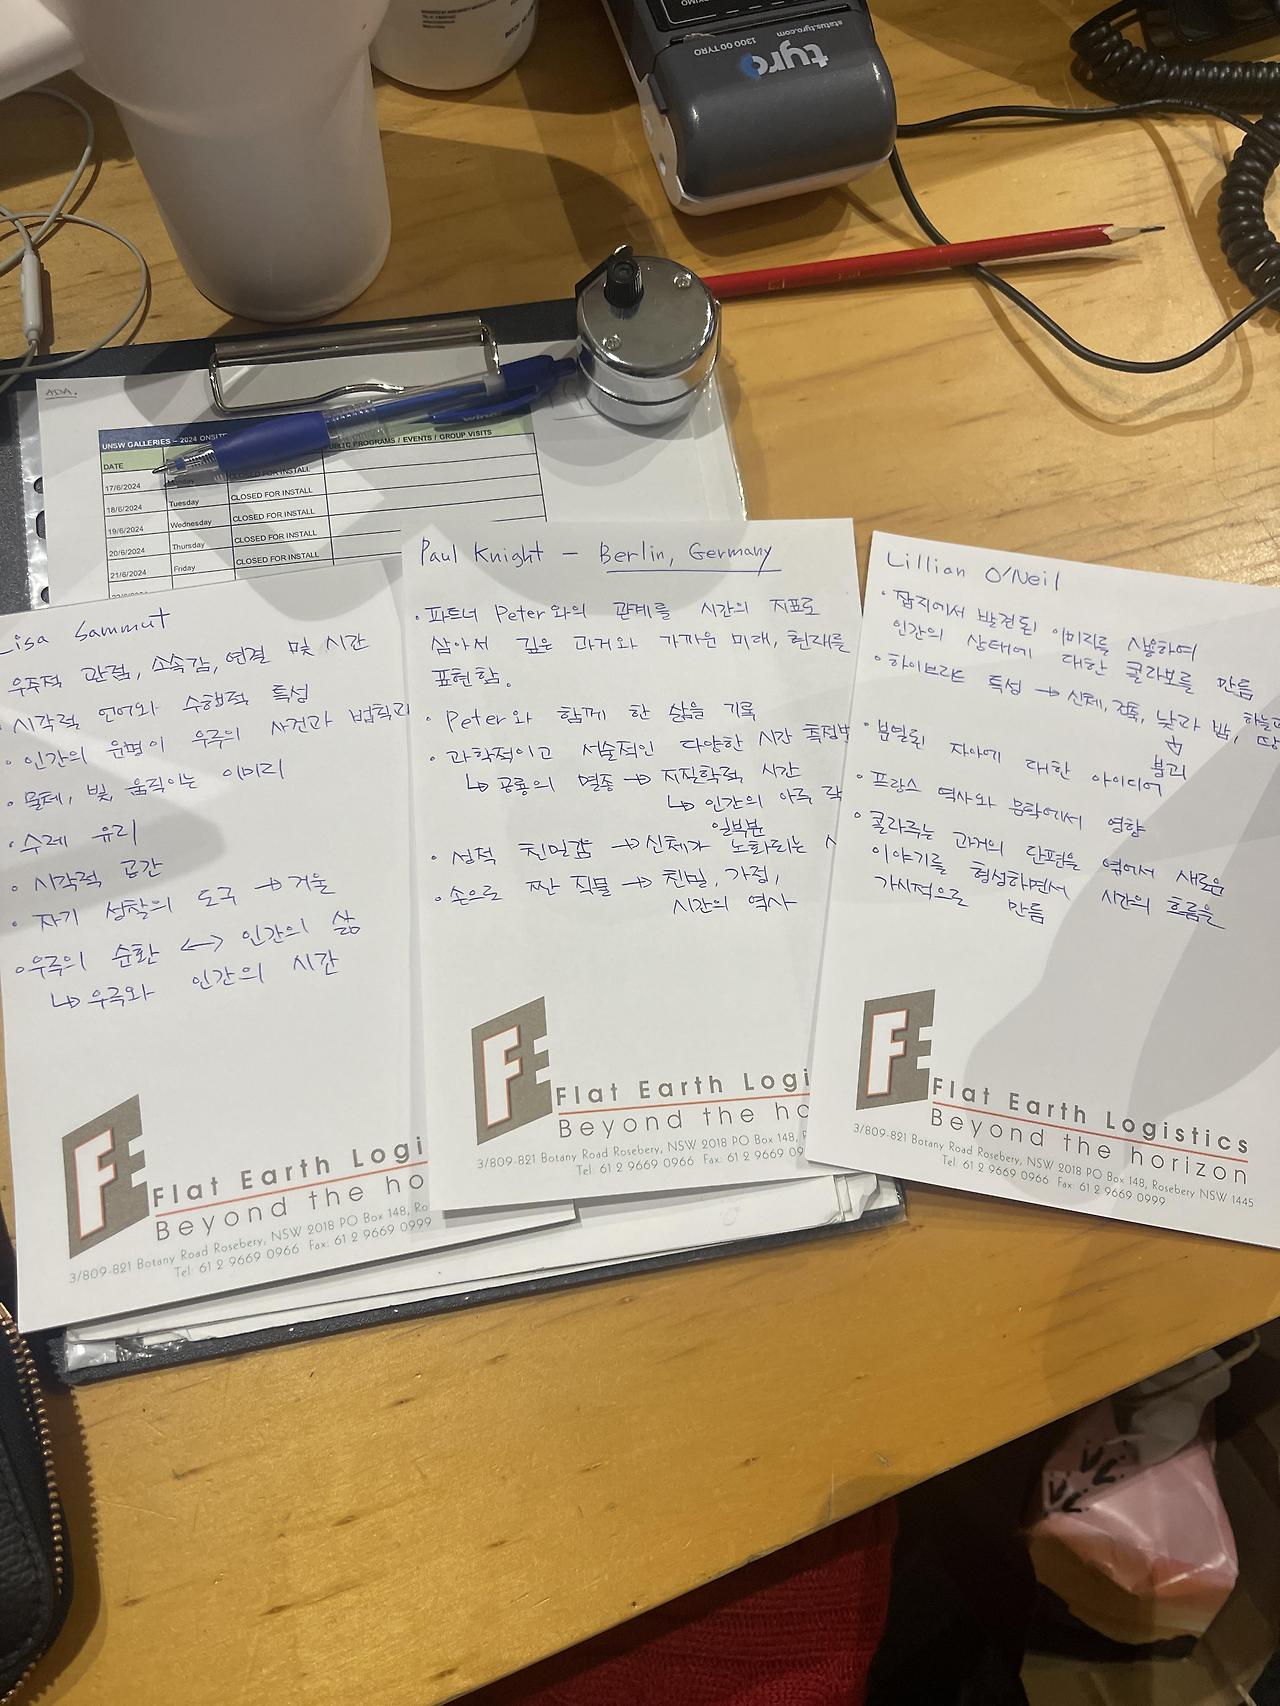 status.tyro.com
1300 00 TYRO
tyro
ADA.
UNSW GALLERIES – 2024 ONSITE
PUBLIC PROGRAMS / EVENTS / GROUP VISITS
DATE
17/6/2024 Monday CLOSED FOR INSTALL
18/6/2024 Tuesday CLOSED FOR INSTALL
19/6/2024 Wednesday CLOSED FOR INSTALL
20/6/2024 Thursday CLOSED FOR INSTALL
21/6/2024 Friday CLOSED FOR INSTALL
Lisa Sammut
우주적 관점, 소속감, 연결 및 시간
· 시각적 언어와 수행적 특성
· 인간의 운명이 우주의 사건과 법칙과
· 물체, 빛, 움직이는 이미지
· 수제 유리
· 시각적 공간
· 자기 성찰의 도구 → 거울
· 우주의 순환 <-> 인간의 삶
↳ 우주와 인간의 시간
Flat Earth Logi
Beyond the ho
3/809-821 Botany Road Rosebery, NSW 2018 PO Box 148, Ro
Tel: 61 2 9669 0966 Fax: 61 2 9669 0999
Paul Knight – Berlin, Germany
· 파트너 Peter와의 관계를 시간의 지표로
삼아서 깊은 과거와 가까운 미래, 현재를
표현함.
· Peter와 함께 한 삶을 기록
· 과학적이고 서술적인 다양한 시간 측정법
↳ 공룡의 멸종 → 지질학적 시간
↳ 인간의 아주 작
일부분
· 성적 친밀감 → 신체가 노화되는
· 손으로 짠 직물 → 친밀, 가정,
시간의 역사
Flat Earth Logi
Beyond the ho
3/809-821 Botany Road Rosebery, NSW 2018 PO Box 148,
Tel: 61 2 9669 0966 Fax: 61 2 9669 09
Lillian O'Neil
· 잡지에서 발견된 이미지를 사용하여
인간의 상태에 대한 콜라보를 만듦
· 하이브리드 특성 → 신체, 건축, 낮과 밤, 하늘과
땅
붕괴
· 분열된 자아에 대한 아이디어
· 프랑스 역사와 문학에서 영향
· 콜라주는 과거의 단편을 엮어서 새로운
이야기를 형성하면서 시간의 흐름을
가시적으로 만듦
Flat Earth Logistics
Beyond the horizon
3/809-821 Botany Road Rosebery, NSW 2018 PO Box 148, Rosebery NSW 1445
Tel: 61 2 9669 0966 Fax: 61 2 9669 0999